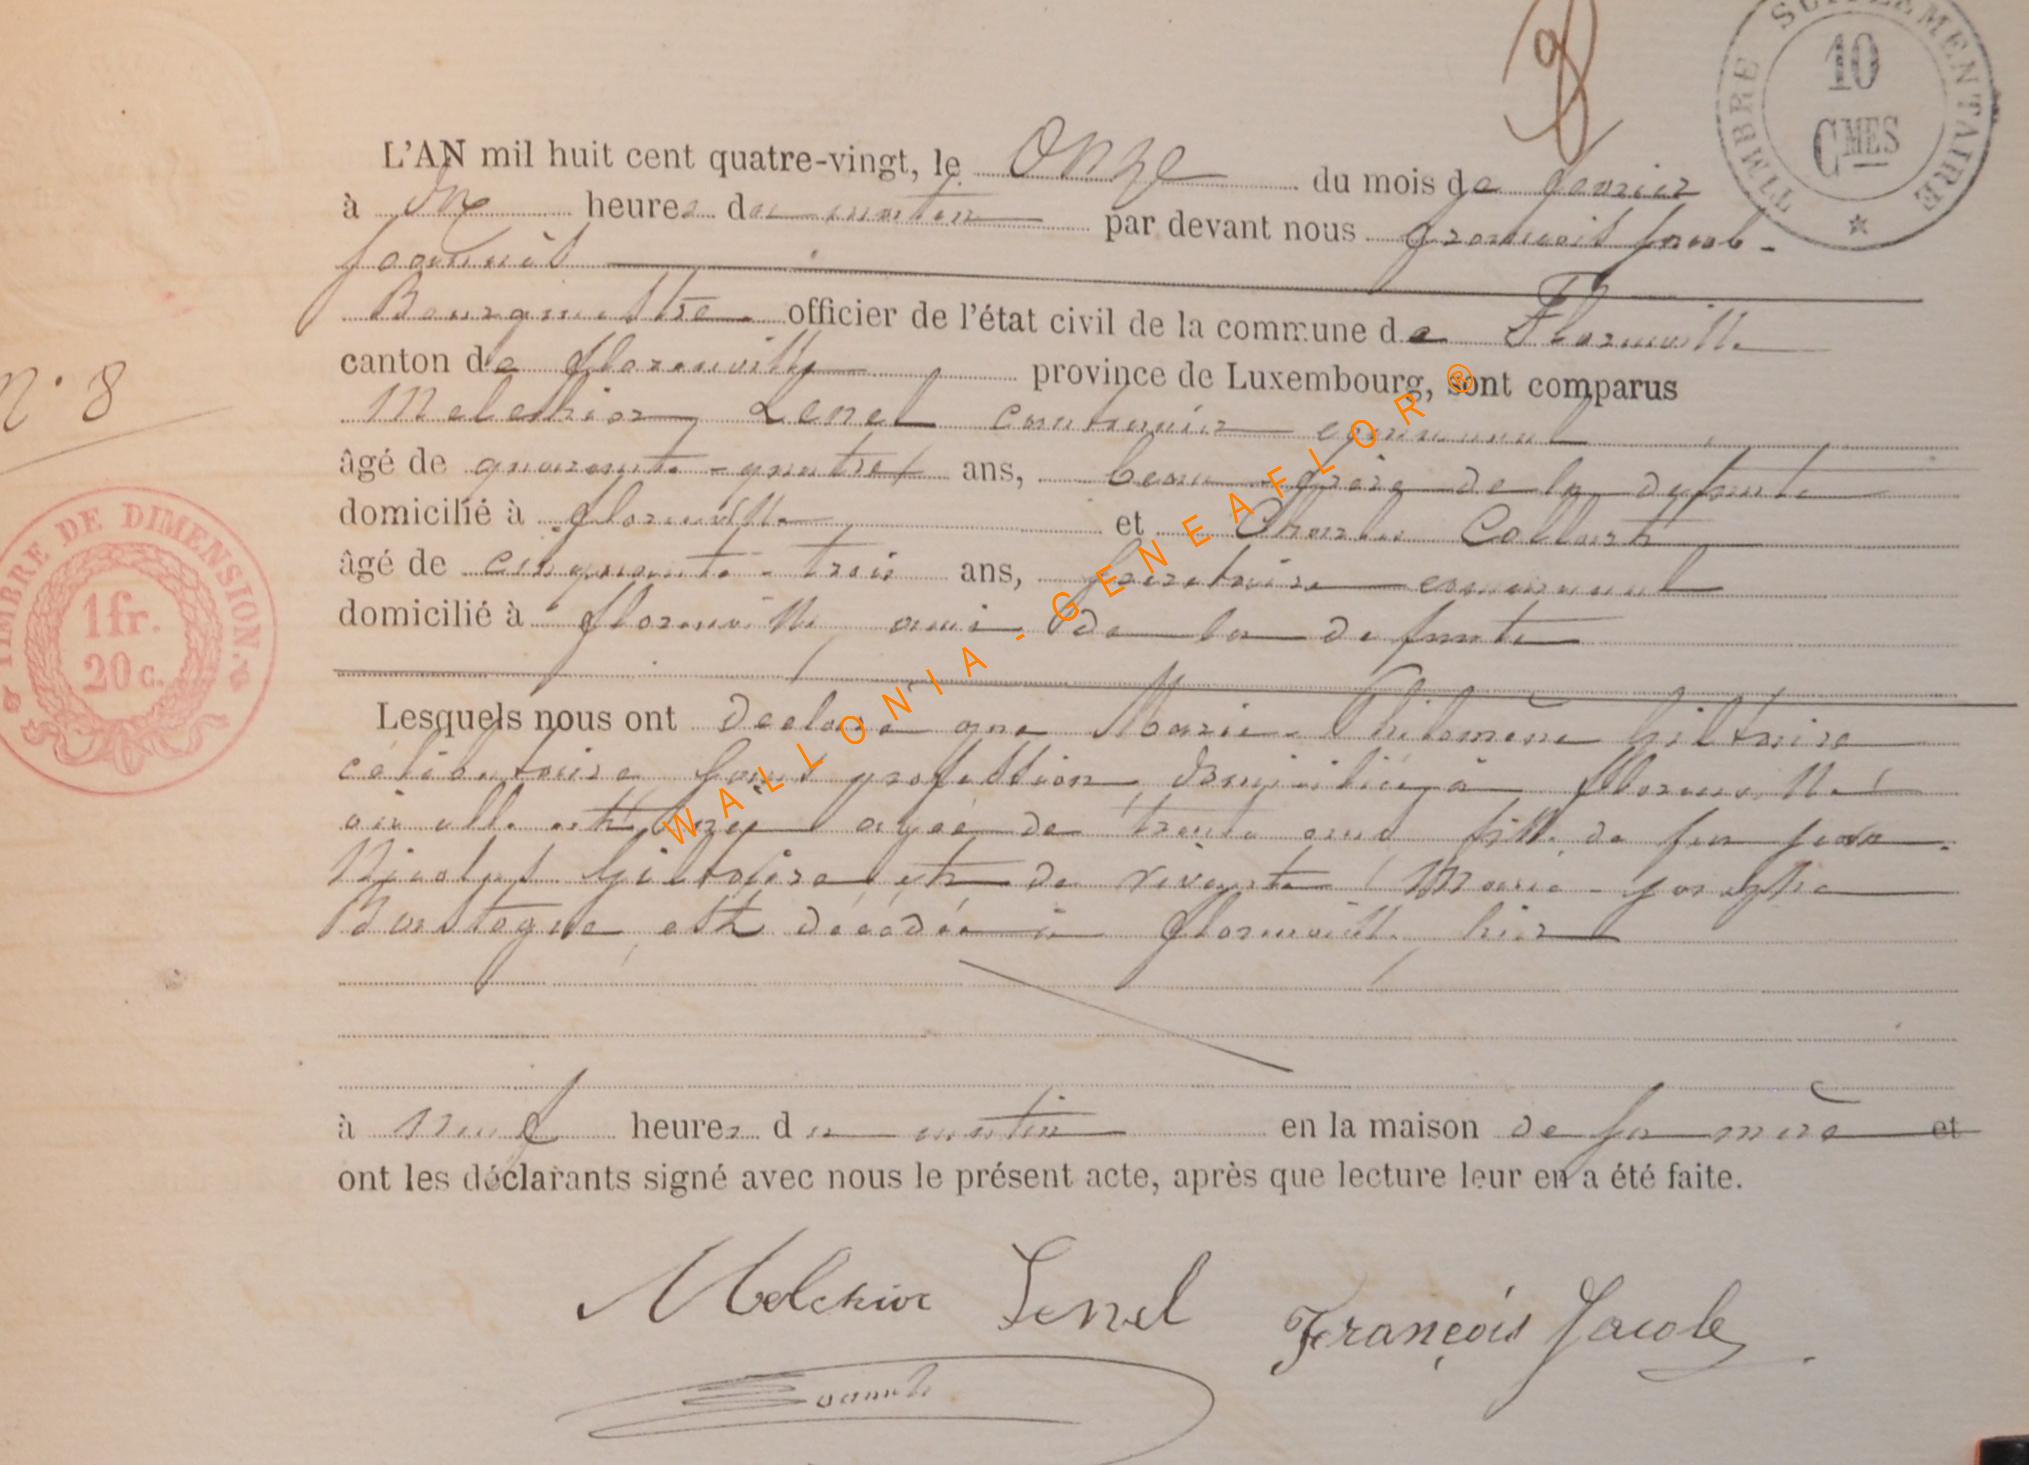 TIMBRE SUPPLÉMENTAIRE
10
CMES
L'AN mil huit cent quatre-vingt, le onze du mois de
à dix heures du matin par devant nous françois Jacob-
Bourgmestre officier de l'état civil de la commune de Florenville
canton de florenville province de Luxembourg, sont comparus
Melchior Lenel cantonnier communal
âgé de quarante-quatre ans, beau-frère de la defunte
domicilié à florenville et Charles Collart
âgé de cinquante-trois ans, secretaire communal
domicilié à florenville, ami de la defunte
Lesquels nous ont declaré que Marie-Philomène
célibataire sans profession, domiciliée à florenville
où elle est née agée de trente ans fille de feu jean
Nicolas et de vivante Marie-josephe
est décédée à florenville, hier
à neuf heures du matin en la maison de sa mère et
ont les déclarants signé avec nous le présent acte, après que lecture leur en a été faite.
N° 8
TIMBRE DE DIMENSION.
1 fr.
20 c.
Melchior Lenel
François Jacob
WALLONIA - GENEAFLOR ®